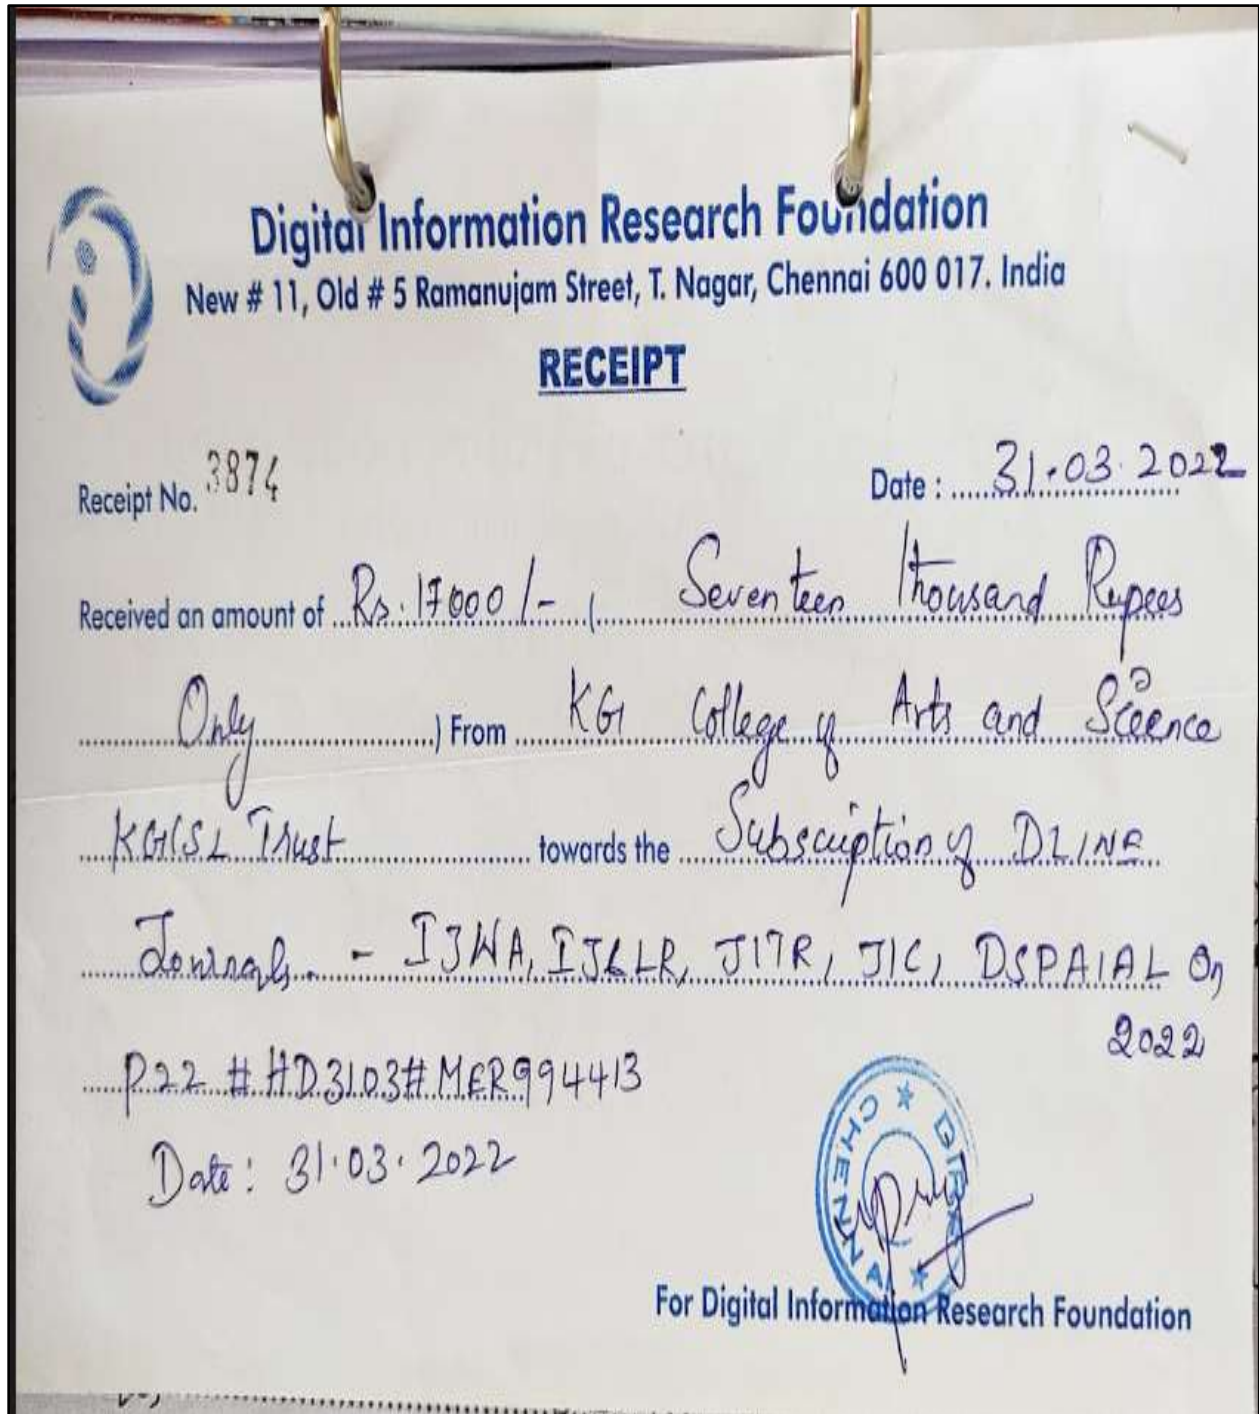 Digital Information Research Foundation
New # 11, Old # 5 Ramanujam Street, T. Nagar, Chennai 600 017. India
RECEIPT
Receipt No. 3874 Date : 31.03.2022
Received an amount of Rs. 17000/- ( Seventeen Thousand Rupees
Only ) From KG College of Arts and Science
KGISL Trust towards the Subscription of DLINE
Journals - IJWA, IJCLR, JITR, JIC, DSPAIAL On
2022
P22 # HD3103# MER994413
Date: 31.03.2022
DIRF CHENNAI
For Digital Information Research Foundation